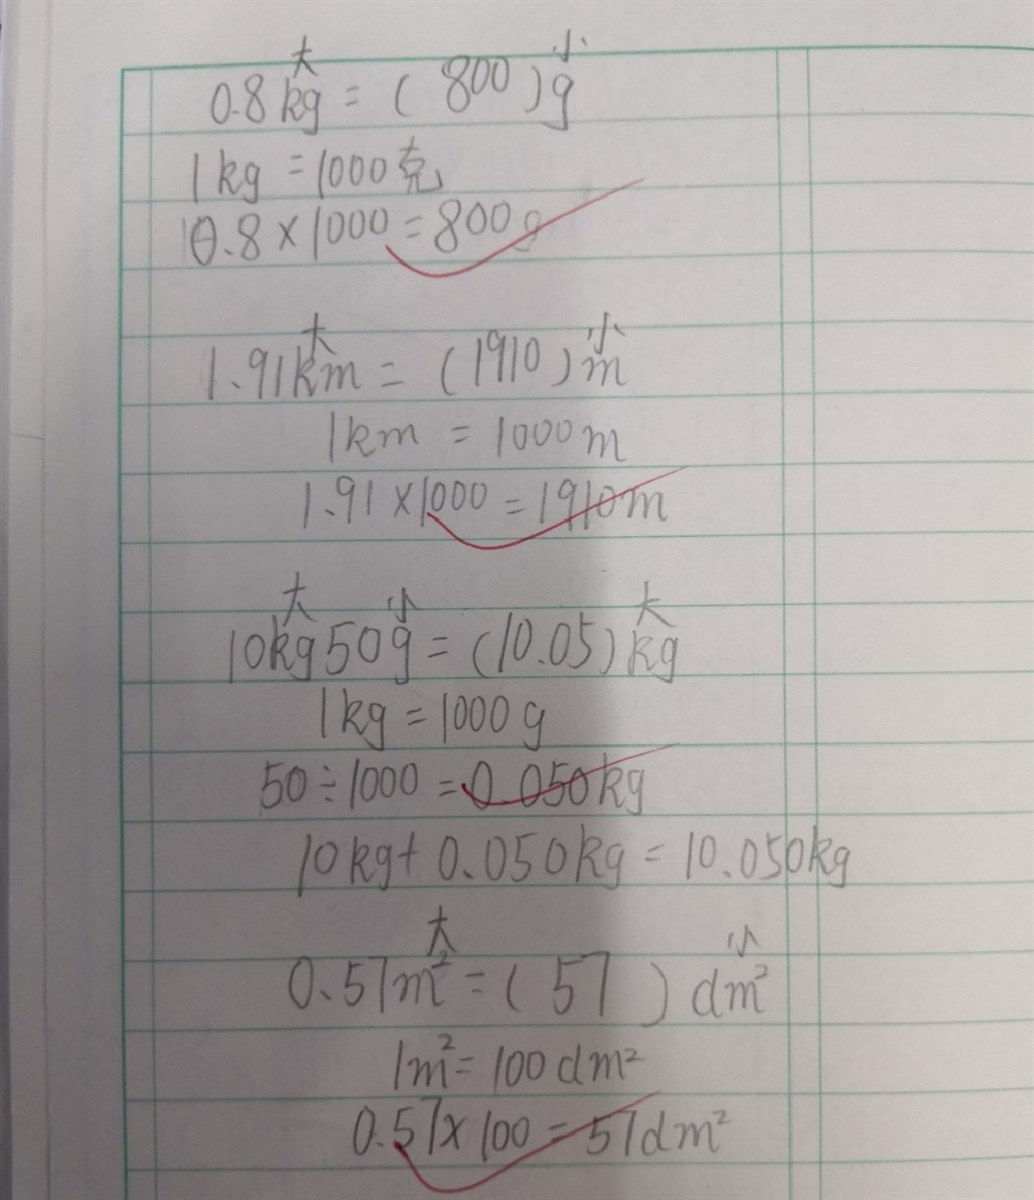 大 小
0.8kg = ( 800 )g
1kg = 1000克
0.8×1000=800g
大 小
1.91km = (1910)m
1km = 1000m
1.91×1000=1910m
大 小 大
10kg50g=(10.05)kg
1kg=1000g
50÷1000=0.050kg
10kg+0.050kg=10.050kg
大 小
0.57m²=( 57 )dm²
1m²=100dm²
0.57×100=57dm²